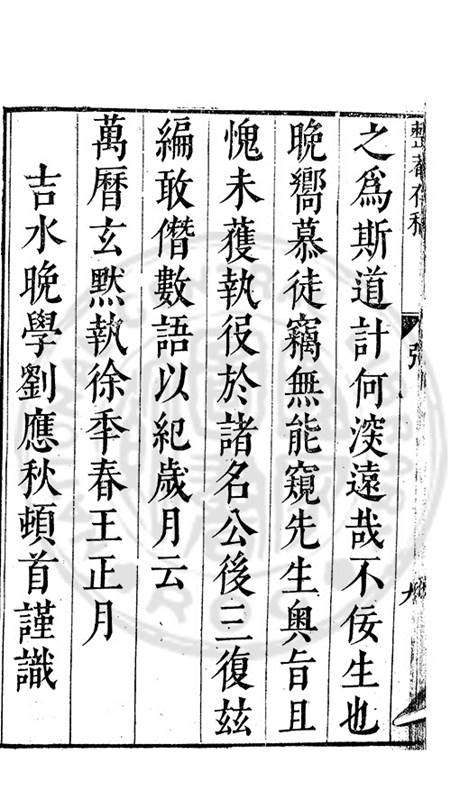 整菴存稿
之爲斯道計何深遠哉不佞生也
晚嚮慕徒竊無能窺先生奧旨且
愧未獲執役於諸名公後三復玆
編敢僭數語以紀歲月云
萬曆玄默執徐季春王正月
吉水晚學劉應秋頓首謹識